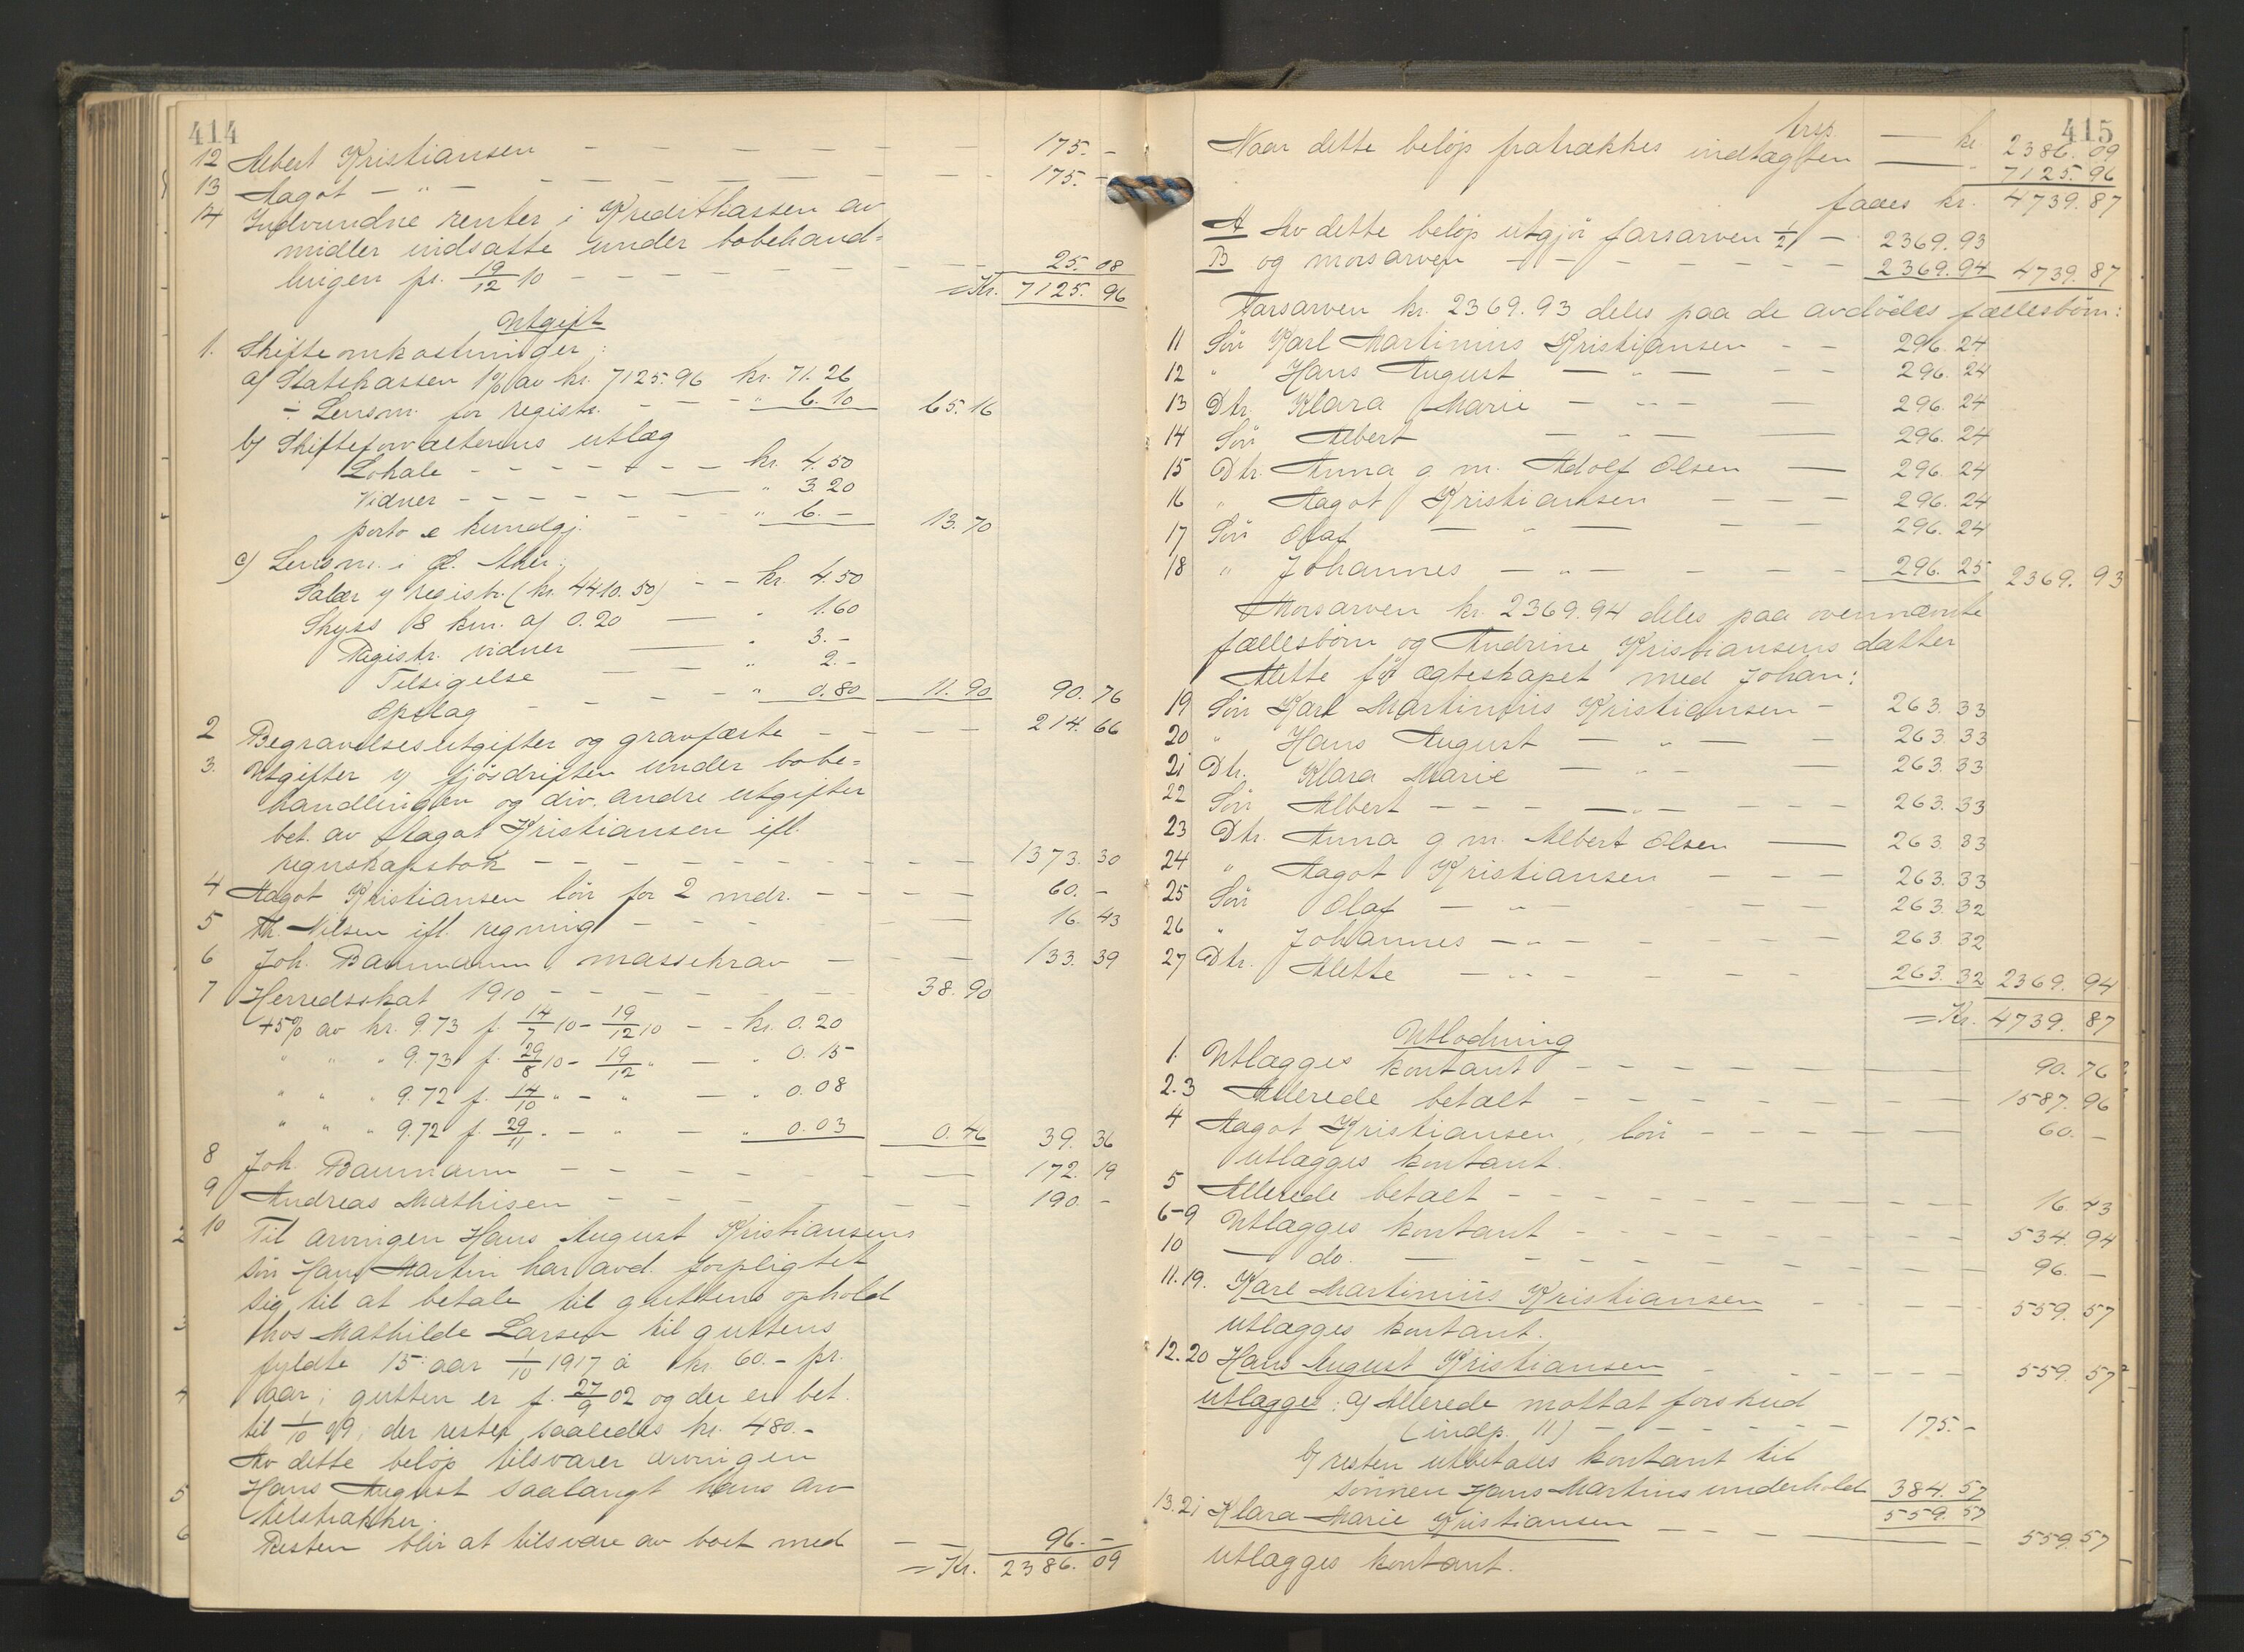 414
12 Albert Kristiansen — — — — — — 175. -
13 Aagot — " — — — — — — — 175. -
14 Indvundne renter i Kreditkassen av
midler indsatte under bobehand-
lingen pr. 19/12 10 — — — — — — 25. 08
= Kr. 7125. 96
Utgift
1. Skifteomkostninger:
a) Statskassen 1% av kr. 7125.96 kr. 71.26
÷ Lensm. for registr. - - - " 6.10 65.16
b) Skifteforvalterens utlæg
Lokale - - - - - - - kr. 4.50
Vidner - - - - - — " 3 20
porto & kundgj. - - - " 6. - 13.70
c) Lensm. i Ø. Aker:
Salær v registr. (kr. 4410.50) - - kr. 4.50
Skyss 8 km. a 0.20 — " 1.60
Registr. vidner — " 3. -
Tilsigelse — — " 2. -
Opslag - - - - - " 0.80 11. 90 90. 76
2 Begravelsesutgifter og gravfæste - - - - 214. 66
3. Utgifter v fjøsdriften under bobe-
handlingen og div. andre utgifter
bet. av Aagot Kristiansen ifl.
regnskapsbok - - - - - - - - - 1373. 30
4 Aagot Kristiansen løn for 2 mdr. - - - - 60. -
5 Th. Nilsen ifl. regning - - - - 16. 43
6 Joh. Baumann, massekrav - - - 133. 39
7 Herredsskat 1910 - - - - - - - 38. 90
+5% av kr. 9.73 f. 14/7 10 - 19/12 10 - - kr. 0.20
" " " 9.73 f. 29/8 10 - 19/12 " — " 0.15
" " " 9.72 f. 14/10 " - " — " 0.08
" " " 9.72 f. 29/11 " - " — " 0.03 0. 46 39. 36
8 Joh. Baumann - - - - - - 172. 19
9 Andreas Mathisen - - - - - 190. -
10 Til arvingen Hans August Kristiansens
søn Hans Martin har avd. forpligtet
sig til at betale til guttens ophold
hos Mathilde Larsen til guttens
fyldte 15 aar 1/10 1917 a kr. 60.- pr.
aar; gutten er f. 27/9 02 og der er bet.
til 1/10 09; der rester saaledes kr. 480.-
Av dette beløp tilsvarer arvingen
Hans August saalangt hans arv
tilstrækker.
Resten blir at tilsvare av boet med — — 96. -
= Kr. 2386. 09
415
trsp. — kr 2386. 09
Naar dette beløp fratrækkes indtægten — " 7125. 96
faaes kr. 4739. 87
A Av dette beløp utgjør farsarven 1/2 — 2369. 93
B og morsarven - - - - - - 2369. 94 4739. 87
Farsarven kr. 2369.93 deles paa de avdødes fællesbørn:
11 Søn Karl Martinius Kristiansen - - 296. 24
12 " Hans August — " — - - 296. 24
13 Dtr. Klara Marie — " — — 296. 24
14 Søn Albert — " — — 296. 24
15 Dtr. Anna g m. Adolf Olsen — 296. 24
16 " Aagot Kristiansen - - - 296. 24
17 Søn Olaf — " — - - 296. 24
18 " Johannes — " — - - - 296. 25 2369. 93
Morsarven kr. 2369.94 deles paa ovennævnte
fællesbørn og Andrine Kristiansens datter
Alette før ægteskapet med Johan:
19 Søn Karl Martinius Kristiansen - 263. 33
20 " Hans August — " — - 263. 33
21 Dtr. Klara Marie — " — — 263. 33
22 Søn Albert - - - — " — - - - 263. 33
23 Dtr. Anna g m. Albert Olsen — 263. 33
24 " Aagot Kristiansen - - - 263. 33
25 Søn Olaf — " — - - - 263. 32
26 " Johannes — " — - - - - 263. 32
27 Dtr. Alette — " — - - - - 263. 32 2369. 94
= Kr. 4739. 87
Utlodning
1. Utlægges kontant - - - - - - 90. 76
2.3 Allerede betalt - - - - - - - 1587. 96
4 Aagot Kristiansen, løn - - - - - 60. -
utlægges kontant.
5 Allerede betalt - - - - - - - 16. 43
6-9 Utlægges kontant - - - - - - - 534. 94
10 — do. — - - - - - - - 96. -
11.19. Karl Martinius Kristiansen - - - - 559. 57
utlægges kontant.
12.20 Hans August Kristiansen - - - - - 559. 57
utlægges: a) Allerede mottat forskud
(indp. 11) - - - - - - 175. -
b) resten utbetales kontant til
sønnen Hans Martins underhold 384. 57
559. 57
13.21 Klara Marie Kristiansen - - - — 559. 57
utlægges kontant.